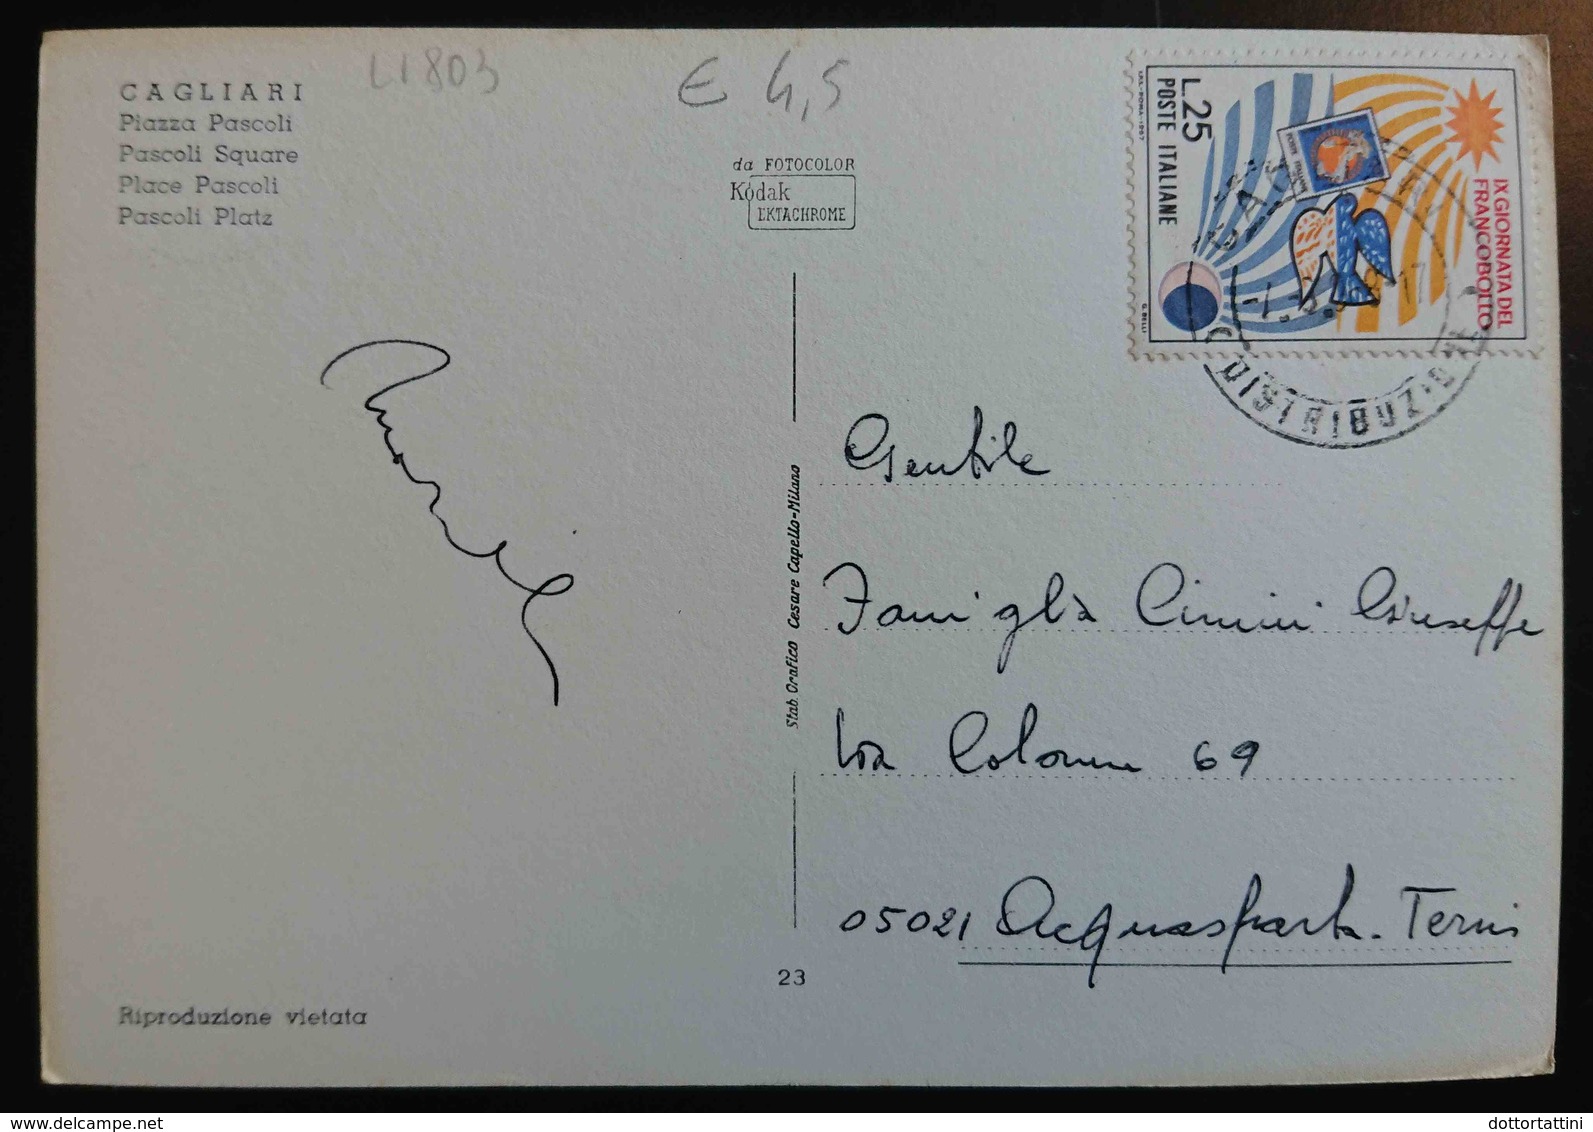 CAGLIARI
Piazza Pascoli
Pascoli Square
Place Pascoli
Pascoli Platz
L1803
E 4,5
da FOTOCOLOR
Kodak
EKTACHROME
L.25
POSTE ITALIANE
I.P.S.-ROMA-1967
IX GIORNATA DEL
FRANCOBOLLO
G. BELLI
Stab. Grafico Cesare Capello-Milano
Gentile
Famiglia Cimini Giuseppe
Via Colonne 69
05021 Acquasparta-Terni
23
Riproduzione vietata
dottortattini